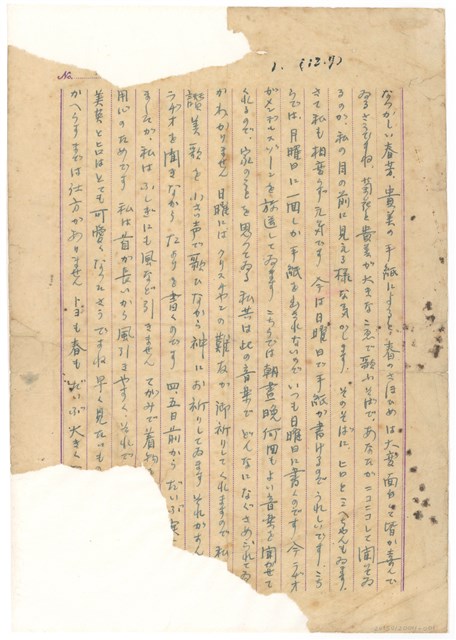 1. (12.7)
No.
なつかしい春葉、貴美の手紙によると、春のさほぬめは大変面白くて皆が喜んで
ゐるさうですね。芳郎と貴美が大きなこゑで歌ふそばで、あなたがニコニコして聞いてゐ
るのが、私の目の前に見える様な気がします。そのそばに、ヒロとミヘちゃんもゐます。
さて私も相変らず元気です。今は日曜日で手紙が書けるのでうれしいです。こち
らでは、月曜日に一回しか手紙を出されないので、いつも日曜日に書くのです。今ラヂオ
がメンデルスゾーンを放送してゐます。こちらでは朝晝晩何回もよい音楽を聞かせて
くれるので、家のことを思つてゐる私共は此の音楽でどんなになぐさめられてゐ
かわかりません。日曜には、クリスチャンの難友が御祈りしてくれますので、私
讃美歌を小さい声で歌ひながら神にお祈りしてゐます。それからすん
ラヂオを聞きながらたよりを書くのです。四五日前からだいぶ寒
ましたが、私はふしぎにも風など引きません。てがみで着物
用心のためです。私は首が長いから風引きやすく、それで
美英とヒロはとても可愛くなつたさうですね。早く見たいもの
かへらずまでは仕方がありません。トヨも春もだいぶ大きく